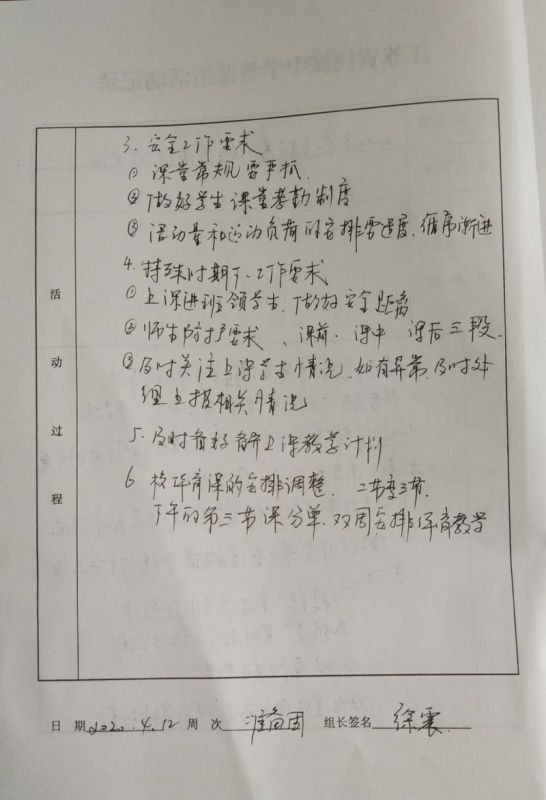 3. 安全工作要求
① 课堂常规要严抓.
② 做好学生课堂考勤制度
③ 活动量和运动负荷的安排需适度、循序渐进
4. 特殊时期下工作要求
① 上课进班领学生、做好安全距离
② 师生防护要求、课前、课中 课后三段.
③ 及时关注上课学生情况、如有异常、及时处
理上报相关情况
5. 及时备好 上课教学计划
6 体育课的安排调整、二节变三节.
下午的第三节课分单、双周安排体育教学
活
动
过
程
日 期 2020.4.12 周 次 准备周 组长签名 徐震